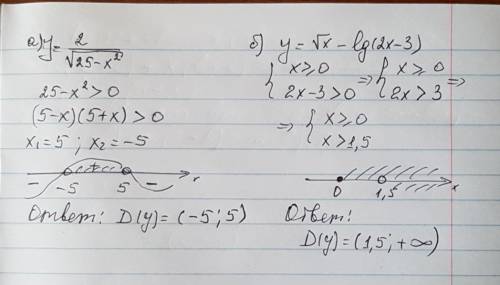 а) y = 2/√(25-x²)
25-x²>0
(5-x)(5+x)>0
x₁=5 ; x₂=-5
- -5 + 5 - x
Ответ: D(y)=(-5;5)
б) y=√x - lg(2x-3)
{x≥0 2x-3>0 => {x≥0 2x>3 =>
=> {x≥0 x>1,5
0 1,5 x
Ответ:
D(y)=(1,5;+∞)